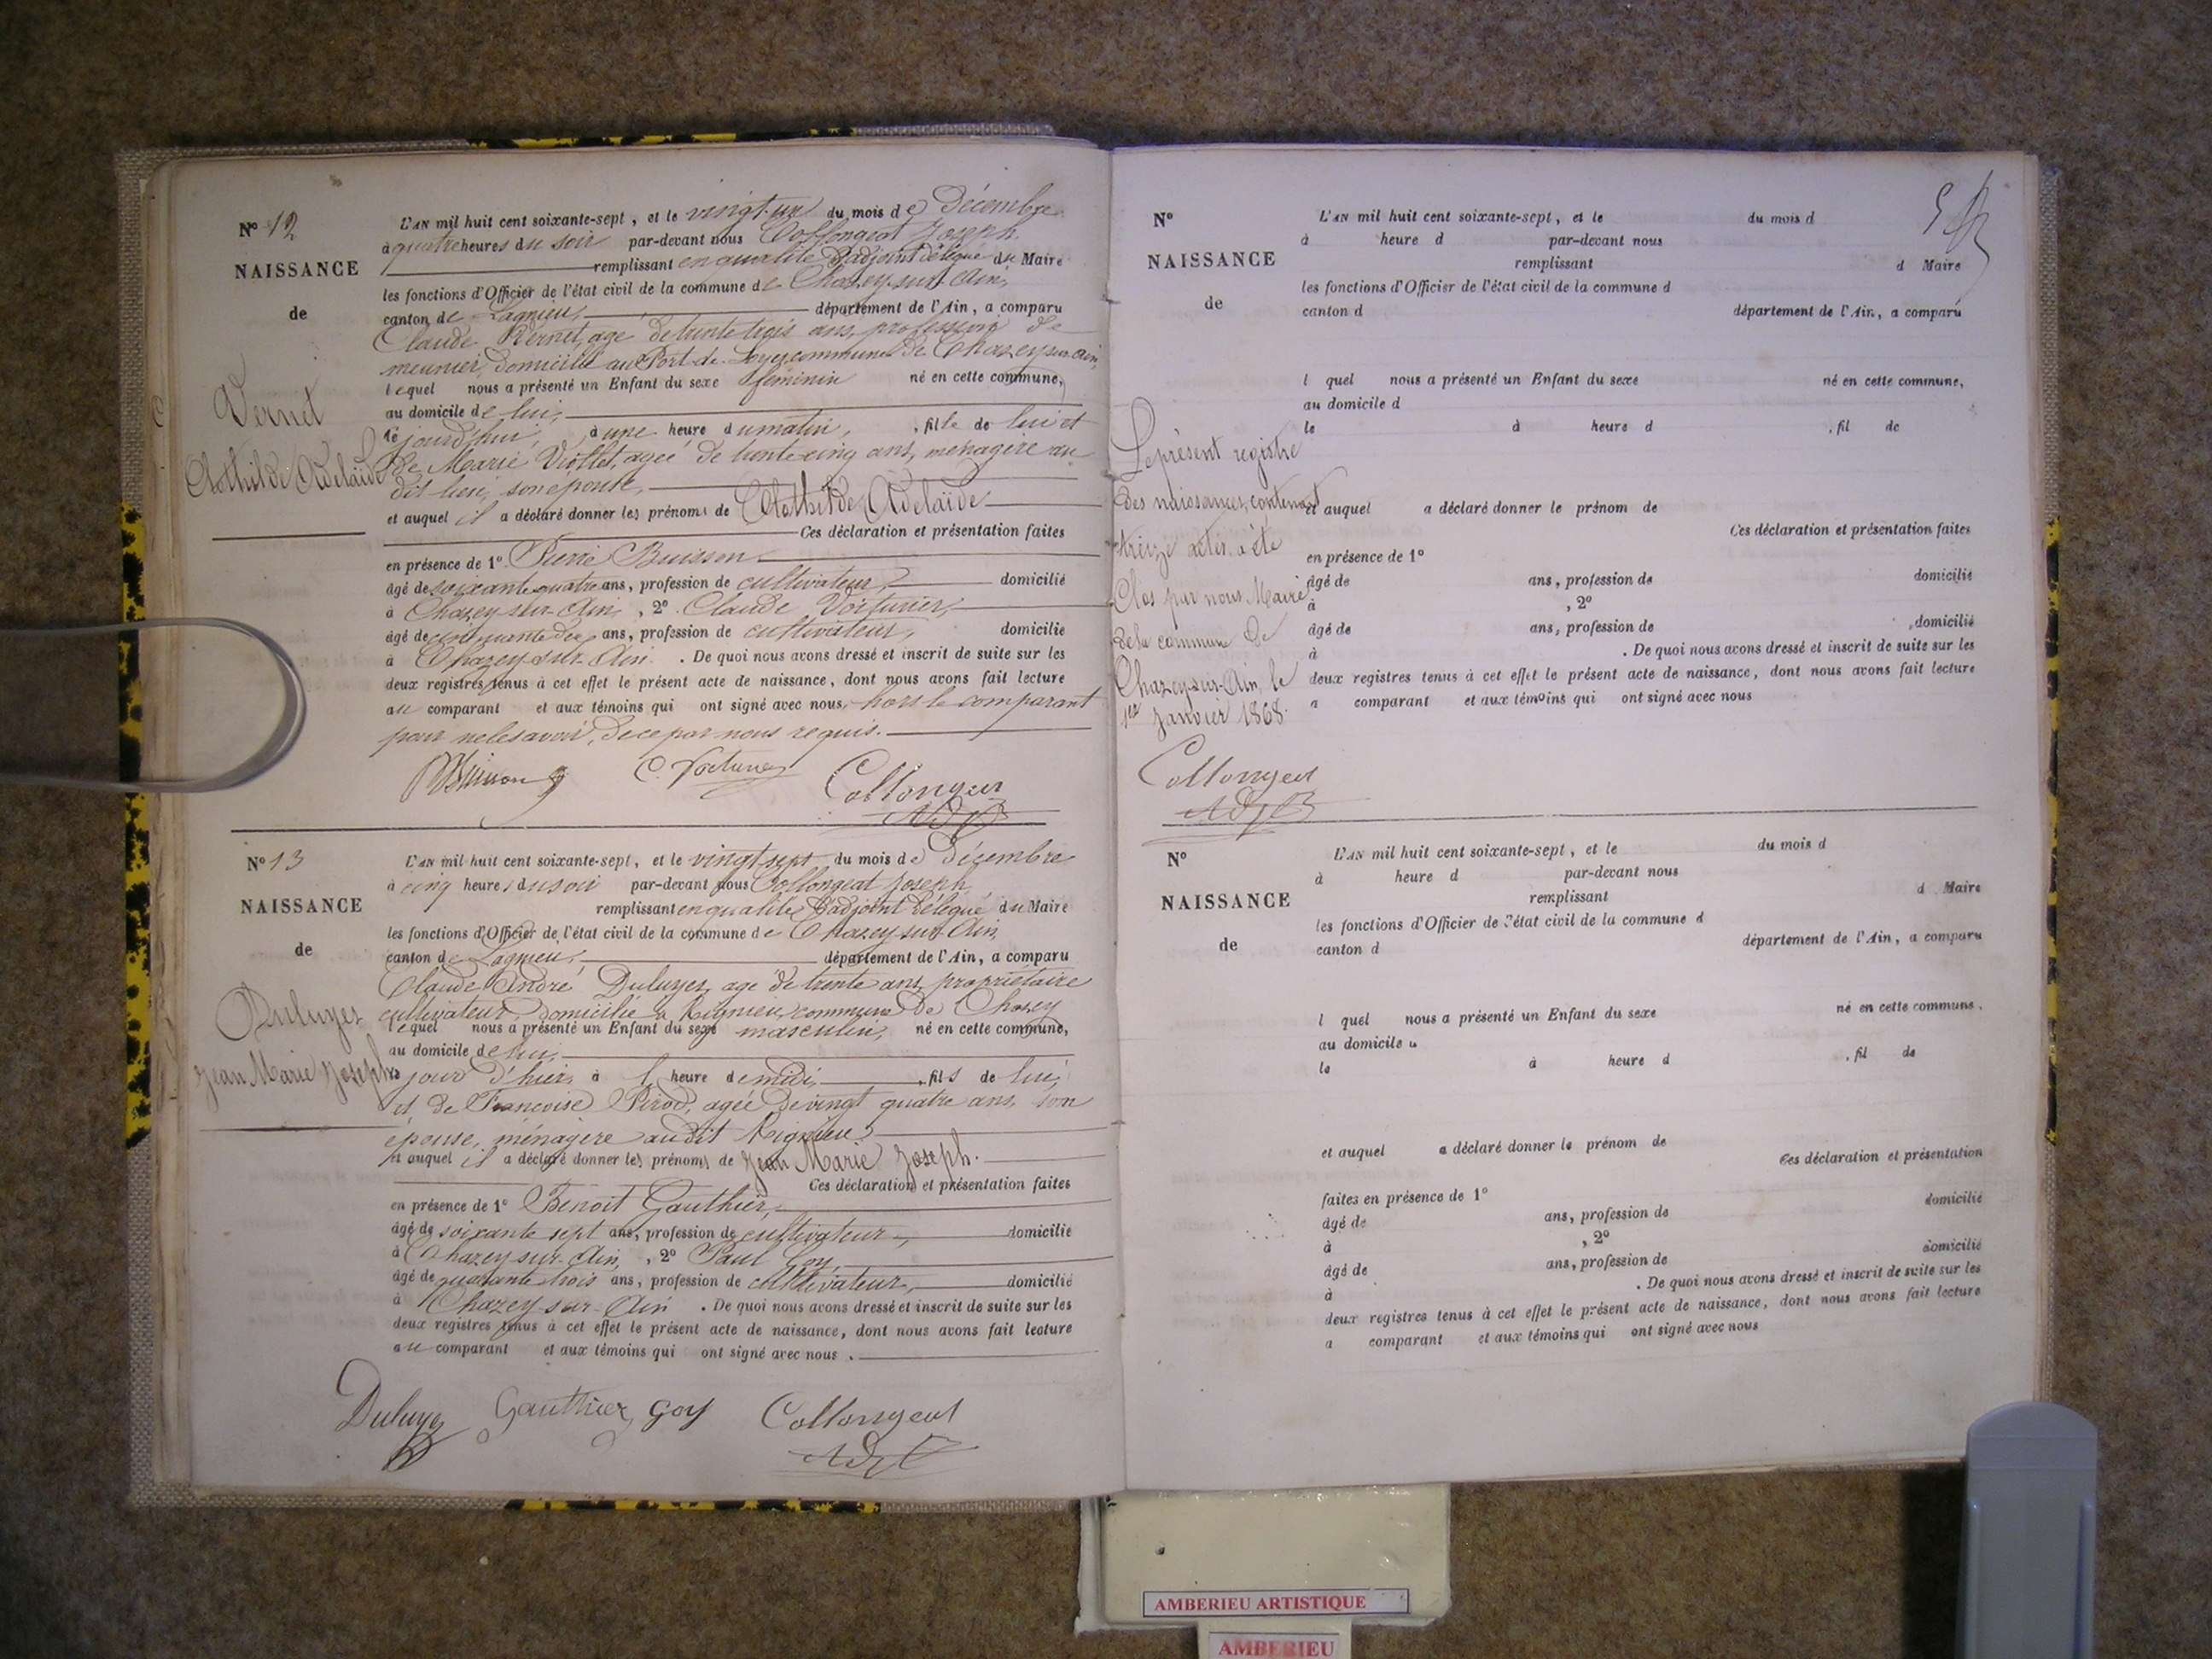 N° 12
NAISSANCE
de
Vernet
Clothilde Adelaïde
L'AN mil huit cent soixante-sept, et le vingt-un du mois de Décembre
à quatre heures du soir par-devant nous Collongeat Joseph
remplissant en qualité d'adjoint délégué du Maire
les fonctions d'Officier de l'état civil de la commune de Chazey-sur-Ain,
canton de Lagnieu, département de l'Ain, a comparu
Claude Vernet, agé de trente trois ans, profession de
meunier, domicilié au Port de Loyes commune de Chazey-sur-Ain,
lequel nous a présenté un Enfant du sexe féminin né en cette commune,
au domicile de lui,
le jourd'hui, à une heure du matin, fille de lui et
de Marie Viollet, agée de trente cinq ans, ménagère au
dit lieu, son épouse,
et auquel il a déclaré donner les prénoms de Clothilde Adelaïde
Ces déclaration et présentation faites
en présence de 1° Pierre Buisson
âgé de soixante quatre ans, profession de cultivateur, domicilié
à Chazey-sur-Ain, 2° Claude Voiturier,
âgé de cinquante deux ans, profession de cultivateur, domicilié
à Chazey-sur-Ain. De quoi nous avons dressé et inscrit de suite sur les
deux registres tenus à cet effet le présent acte de naissance, dont nous avons fait lecture
au comparant et aux témoins qui ont signé avec nous, hors le comparant
pour ne le savoir, de ce par nous requis.
Buisson C. Voiturier Collongeat
Adjt
N° 13
NAISSANCE
de
Duluyer
Jean Marie Joseph
L'AN mil huit cent soixante-sept, et le vingt sept du mois de Décembre
à cinq heures du soir par-devant nous Collongeat Joseph
remplissant en qualité d'adjoint délégué du Maire
les fonctions d'Officier de l'état civil de la commune de Chazey-sur-Ain,
canton de Lagnieu, département de l'Ain, a comparu
Claude André Duluyer, agé de trente ans, propriétaire
cultivateur, domicilié à Rignieu, commune de Chazey
lequel nous a présenté un Enfant du sexe masculin, né en cette commune,
au domicile de lui,
le jour d'hier, à l' heure de midi, fils de lui,
et de Francoise Pirod, agée de vingt quatre ans, son
épouse, ménagère audit Rignieu
et auquel il a déclaré donner les prénoms de Jean Marie Joseph.
Ces déclaration et présentation faites
en présence de 1° Benoit Gauthier,
âgé de soixante sept ans, profession de cultivateur, domicilié
à Chazey-sur-Ain, 2° Paul Goy,
âgé de quarante trois ans, profession de cultivateur, domicilié
à Chazey-sur-Ain. De quoi nous avons dressé et inscrit de suite sur les
deux registres tenus à cet effet le présent acte de naissance, dont nous avons fait lecture
au comparant et aux témoins qui ont signé avec nous.
Duluyer Gauthier Goy Collongeat
Adjt
N°
NAISSANCE
de
L'AN mil huit cent soixante-sept, et le du mois d
à heure d par-devant nous
remplissant d Maire
les fonctions d'Officier de l'état civil de la commune d
canton d département de l'Ain, a comparu
l quel nous a présenté un Enfant du sexe né en cette commune,
au domicile d
le à heure d , fil de
et auquel a déclaré donner le prénom de
Ces déclaration et présentation faites
en présence de 1°
âgé de ans, profession de domicilié
à , 2°
âgé de ans, profession de , domicilié
à . De quoi nous avons dressé et inscrit de suite sur les
deux registres tenus à cet effet le présent acte de naissance, dont nous avons fait lecture
a comparant et aux témoins qui ont signé avec nous
Le présent registre
des naissances, contenant
treize actes a été
Clos par nous Maire
de la commune de
Chazey-sur-Ain, le
1er Janvier 1868.
Collongeat
Adjt
N°
NAISSANCE
de
L'AN mil huit cent soixante-sept, et le du mois d
à heure d par-devant nous
remplissant d Maire
les fonctions d'Officier de l'état civil de la commune d
canton d département de l'Ain, a comparu
l quel nous a présenté un Enfant du sexe né en cette commune.
au domicile d
le à heure d , fil de
et auquel a déclaré donner le prénom de
Ces déclaration et présentation
faites en présence de 1°
âgé de ans, profession de domicilié
à , 2°
âgé de ans, profession de domicilié
à . De quoi nous avons dressé et inscrit de suite sur les
deux registres tenus à cet effet le présent acte de naissance, dont nous avons fait lecture
a comparant et aux témoins qui ont signé avec nous
AMBERIEU ARTISTIQUE
AMBERIEU